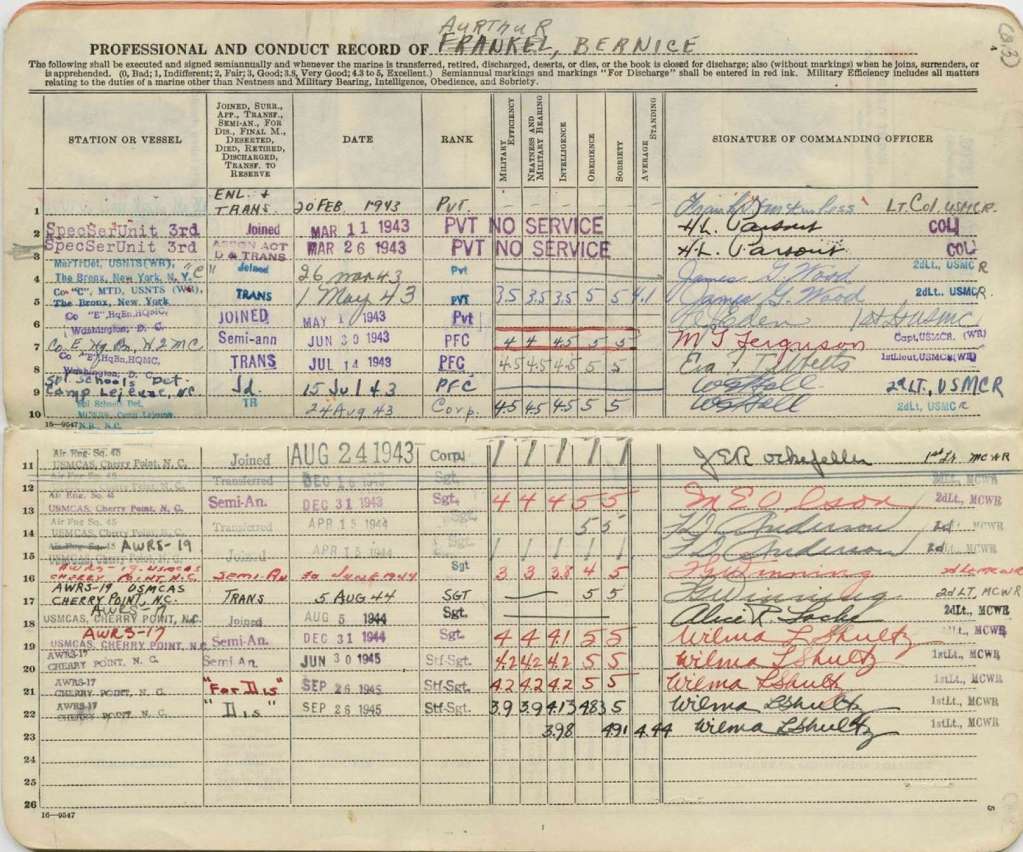 AyRThuR
PROFESSIONAL AND CONDUCT RECORD OF FRANKEL, BERNICE
The following shall be executed and signed semiannually and whenever the marine is transferred, retired, discharged, deserts, or dies, or the book is closed for discharge; also (without markings) when he joins, surrenders, or
is apprehended. (0, Bad; 1, Indifferent; 2, Fair; 3, Good; 3.8, Very Good; 4.3 to 5, Excellent.) Semiannual markings and markings "For Discharge" shall be entered in red ink. Military Efficiency includes all matters
relating to the duties of a marine other than Neatness and Military Bearing, Intelligence, Obedience, and Sobriety.
STATION OR VESSEL JOINED, SURR., APP., TRANSF., SEMI-AN., FOR DIS., FINAL M., DESERTED, DIED, RETIRED, DISCHARGED, TRANSF. TO RESERVE DATE RANK MILITARY EFFICIENCY NEATNESS AND MILITARY BEARING INTELLIGENCE OBEDIENCE SOBRIETY AVERAGE STANDING SIGNATURE OF COMMANDING OFFICER
1 ENL. + TRANS. 20 FEB. 1943 Pvt. LT. Col. USMCR.
2 SpecSerUnit 3rd Joined MAR 11 1943 PVT NO SERVICE H.L. Parsons COL
3 SpecSerUnit 3rd D & TRANS MAR 26 1943 PVT NO SERVICE H.L. Parsons COL
4 MarTrDet, USNTS(WR), The Bronx, New York, N. Y. "C" Joined 26 Mar 43 Pvt James G. Wood 2dLt, USMCR
5 Co "C", MTD, USNTS (WR), The Bronx, New York TRANS 1 May 43 PVT 3.5 3.5 3.5 5 5 4.1 James G. Wood 2dLt., USMCR.
6 Co "E", HqBn, HQMC, Washington, D. C. JOINED MAY 1 1943 Pvt Eden 1st Lt USMC
7 Co. E. Hq. Bn. Semi-ann JUN 30 1943 PFC 4 4 4.5 5 5 M G Ferguson Capt, USMCR. (WR)
8 Co "E", HqBn, HQMC, Washington, D. C. TRANS JUL 14 1943 PFC 4.5 4.5 4.5 5 5 Eva 1stLieut, USMCR(WR)
9 Spl Schools Det. Camp Lejeune, N.C. Jd. 15 Jul 43 PFC W G Hall 2d LT, USMCR
10 Spl School Det, Camp Lejeune N.R., N.C. TR 24 Aug 43 Corp. 4.5 4.5 4.5 5 5 W G Hall 2dLt, USMCR
16—9547
11 Air Eng. Sq. 45 USMCAS, Cherry Point, N. C. Joined AUG 24 1943 Corp J E Rockefeller 1st Lt MCWR
12 Transferred DEC 1943 Sgt. 2dLt., MCWR
13 Air Eng. Sq. 45 USMCAS, Cherry Point, N. C. Semi-An. DEC 31 1943 Sgt. 4 4 4 5 5 M E Olson 2dLt., MCWR
14 Air Eng Sq. 45 USMCAS, Cherry Point, N. C. Transferred APR 15 1944 Sgt. 5 5 Anderson 2d MCWR
15 AWRS-19 Joined APR 15 1944 Sgt Anderson 2d MCWR
16 AWRS-19. USMCAS CHERRY POINT, N.C. SEMI-AN 30 JUNE 1944 3 3 3.8 4 5 Winning 2d Lt MCWR
17 AWRS-19 USMCAS CHERRY POINT, N.C. TRANS 5 AUG 44 SGT 5 5 Winning 2d LT, MCWR
18 AWRS-17 USMCAS, CHERRY POINT, N.C. Joined AUG 5 1944 Sgt. Alice R. 2dLt., MCWR
19 AWRS-17 USMCAS, CHERRY POINT, N.C. Semi-An. DEC 31 1944 Sgt. 4 4 4.1 5 5 Wilma L Shultz MCWR
20 AWRS-17 CHERRY POINT, N. C. Semi An. JUN 30 1945 Stf-Sgt. 4.2 4.2 4.2 5 5 Wilma L Shultz 1stLt., MCWR
21 AWRS-17 CHERRY POINT, N. C. "For Dis" SEP 26 1945 Stf-Sgt. 4.2 4.2 4.2 5 5 Wilma L Shultz 1stLt., MCWR
22 AWRS-17 CHERRY POINT, N. C. "Dis" SEP 26 1945 Stf-Sgt. 3.9 3.9 4.13 4.83 5 Wilma L Shultz 1stLt., MCWR
23 3.98 4.91 4.44 Wilma L Shultz 1stLt., MCWR
24
25
26
16—9547